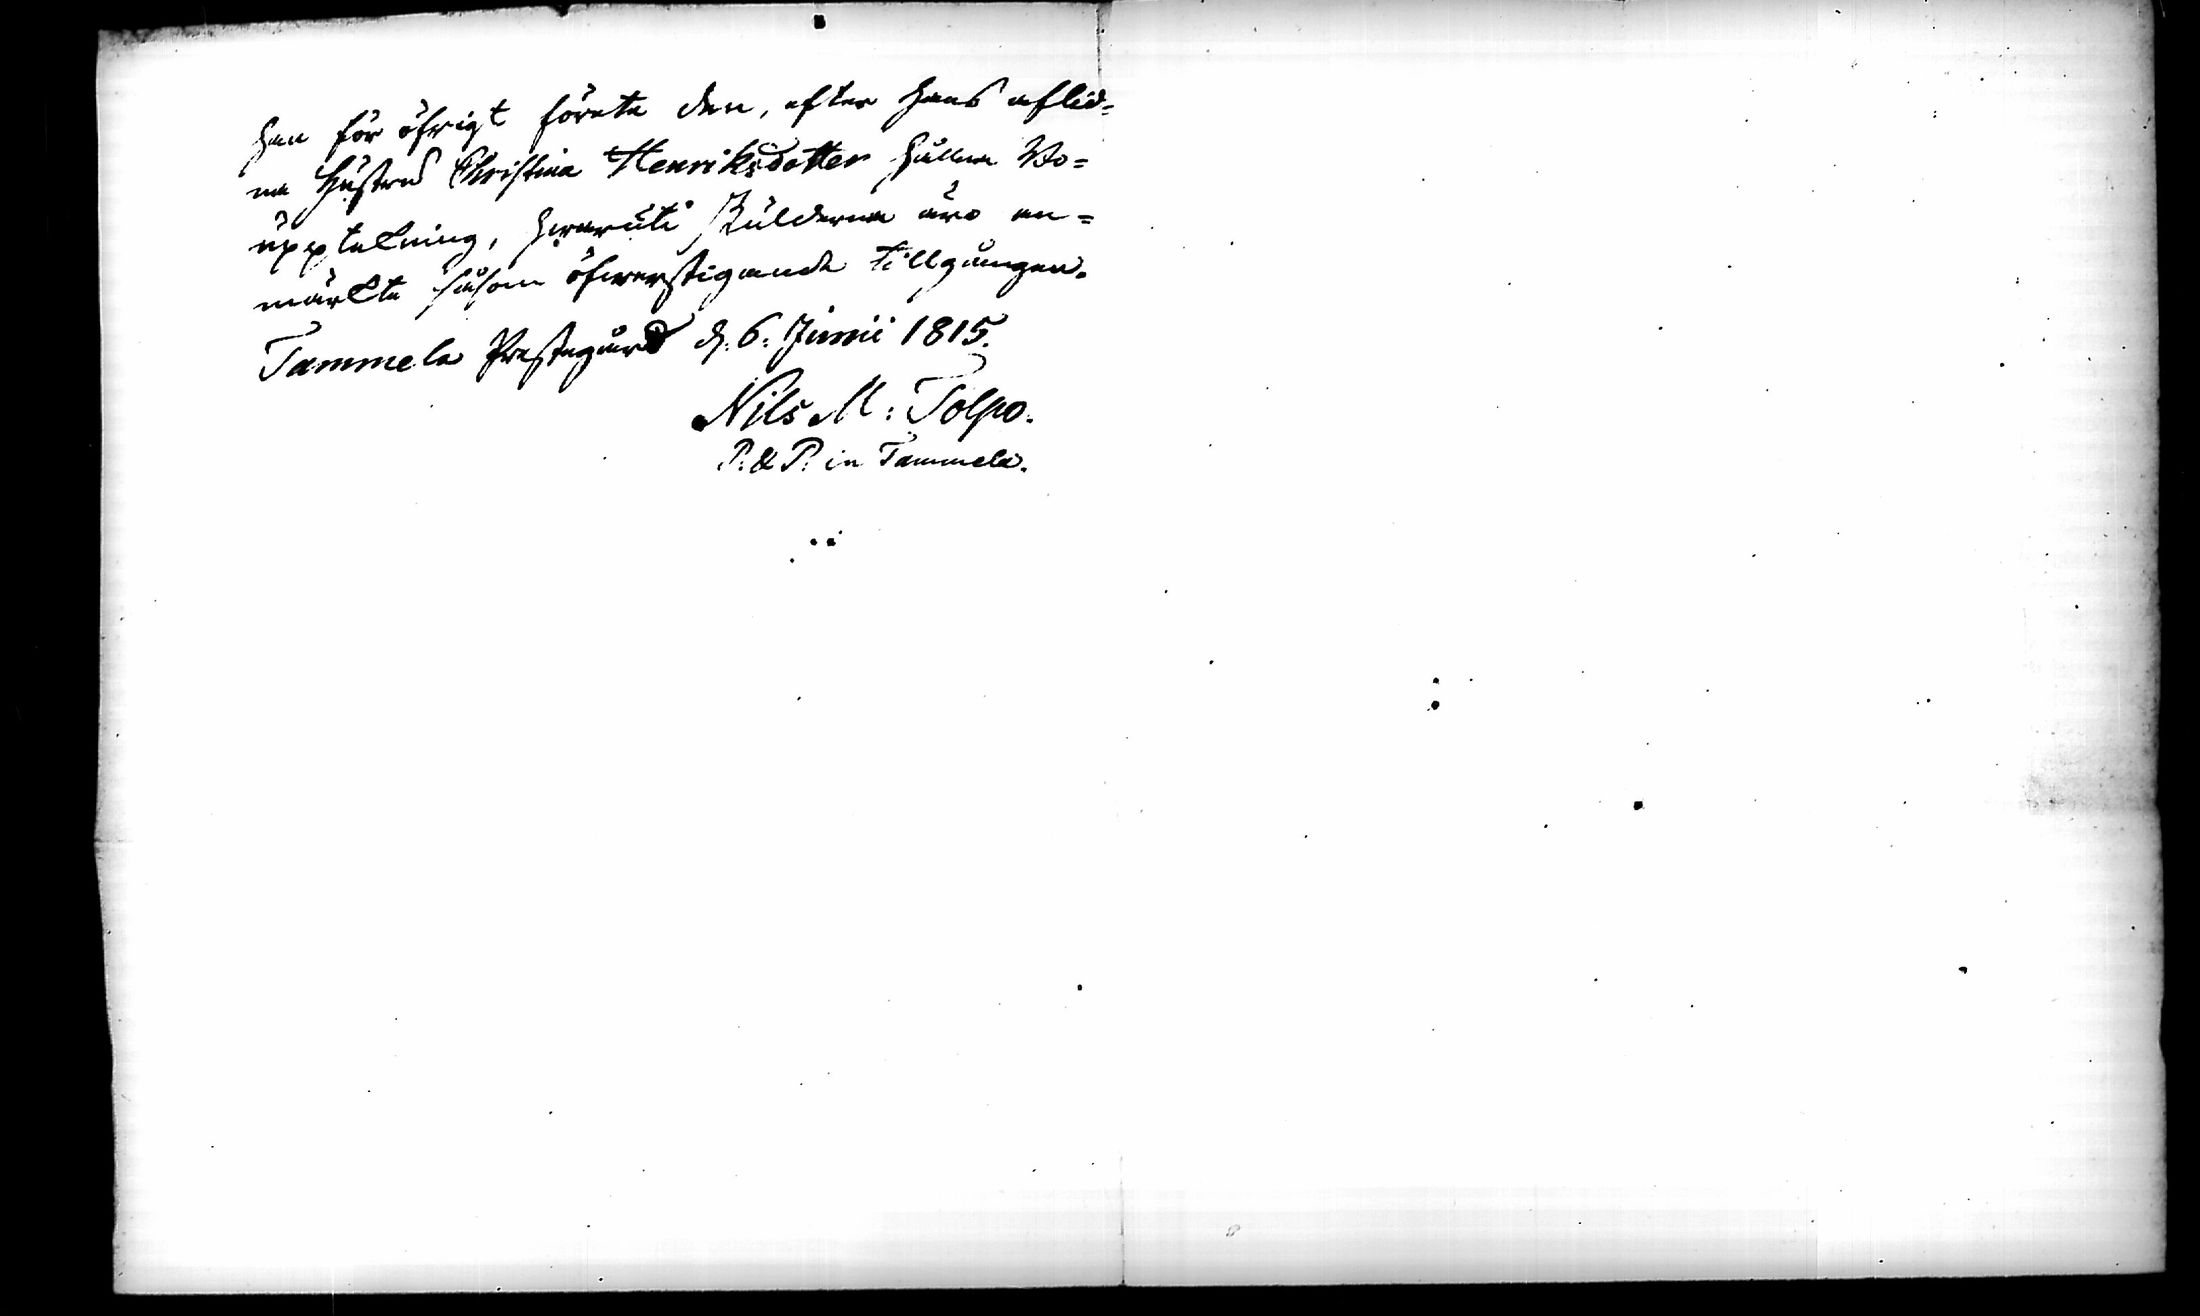 han för öfrigt förete den, efter hans aflid=
na Hustru Christina Henriksdotter hållna Bo=
uppteckning, hwaruti skulderna äro an=
märkte såsom öfwerstigande tillgången.
Tammela Prestegård d. 6. Junii 1815.
Nils M: Tolpo.
P. & P. in Tammela.